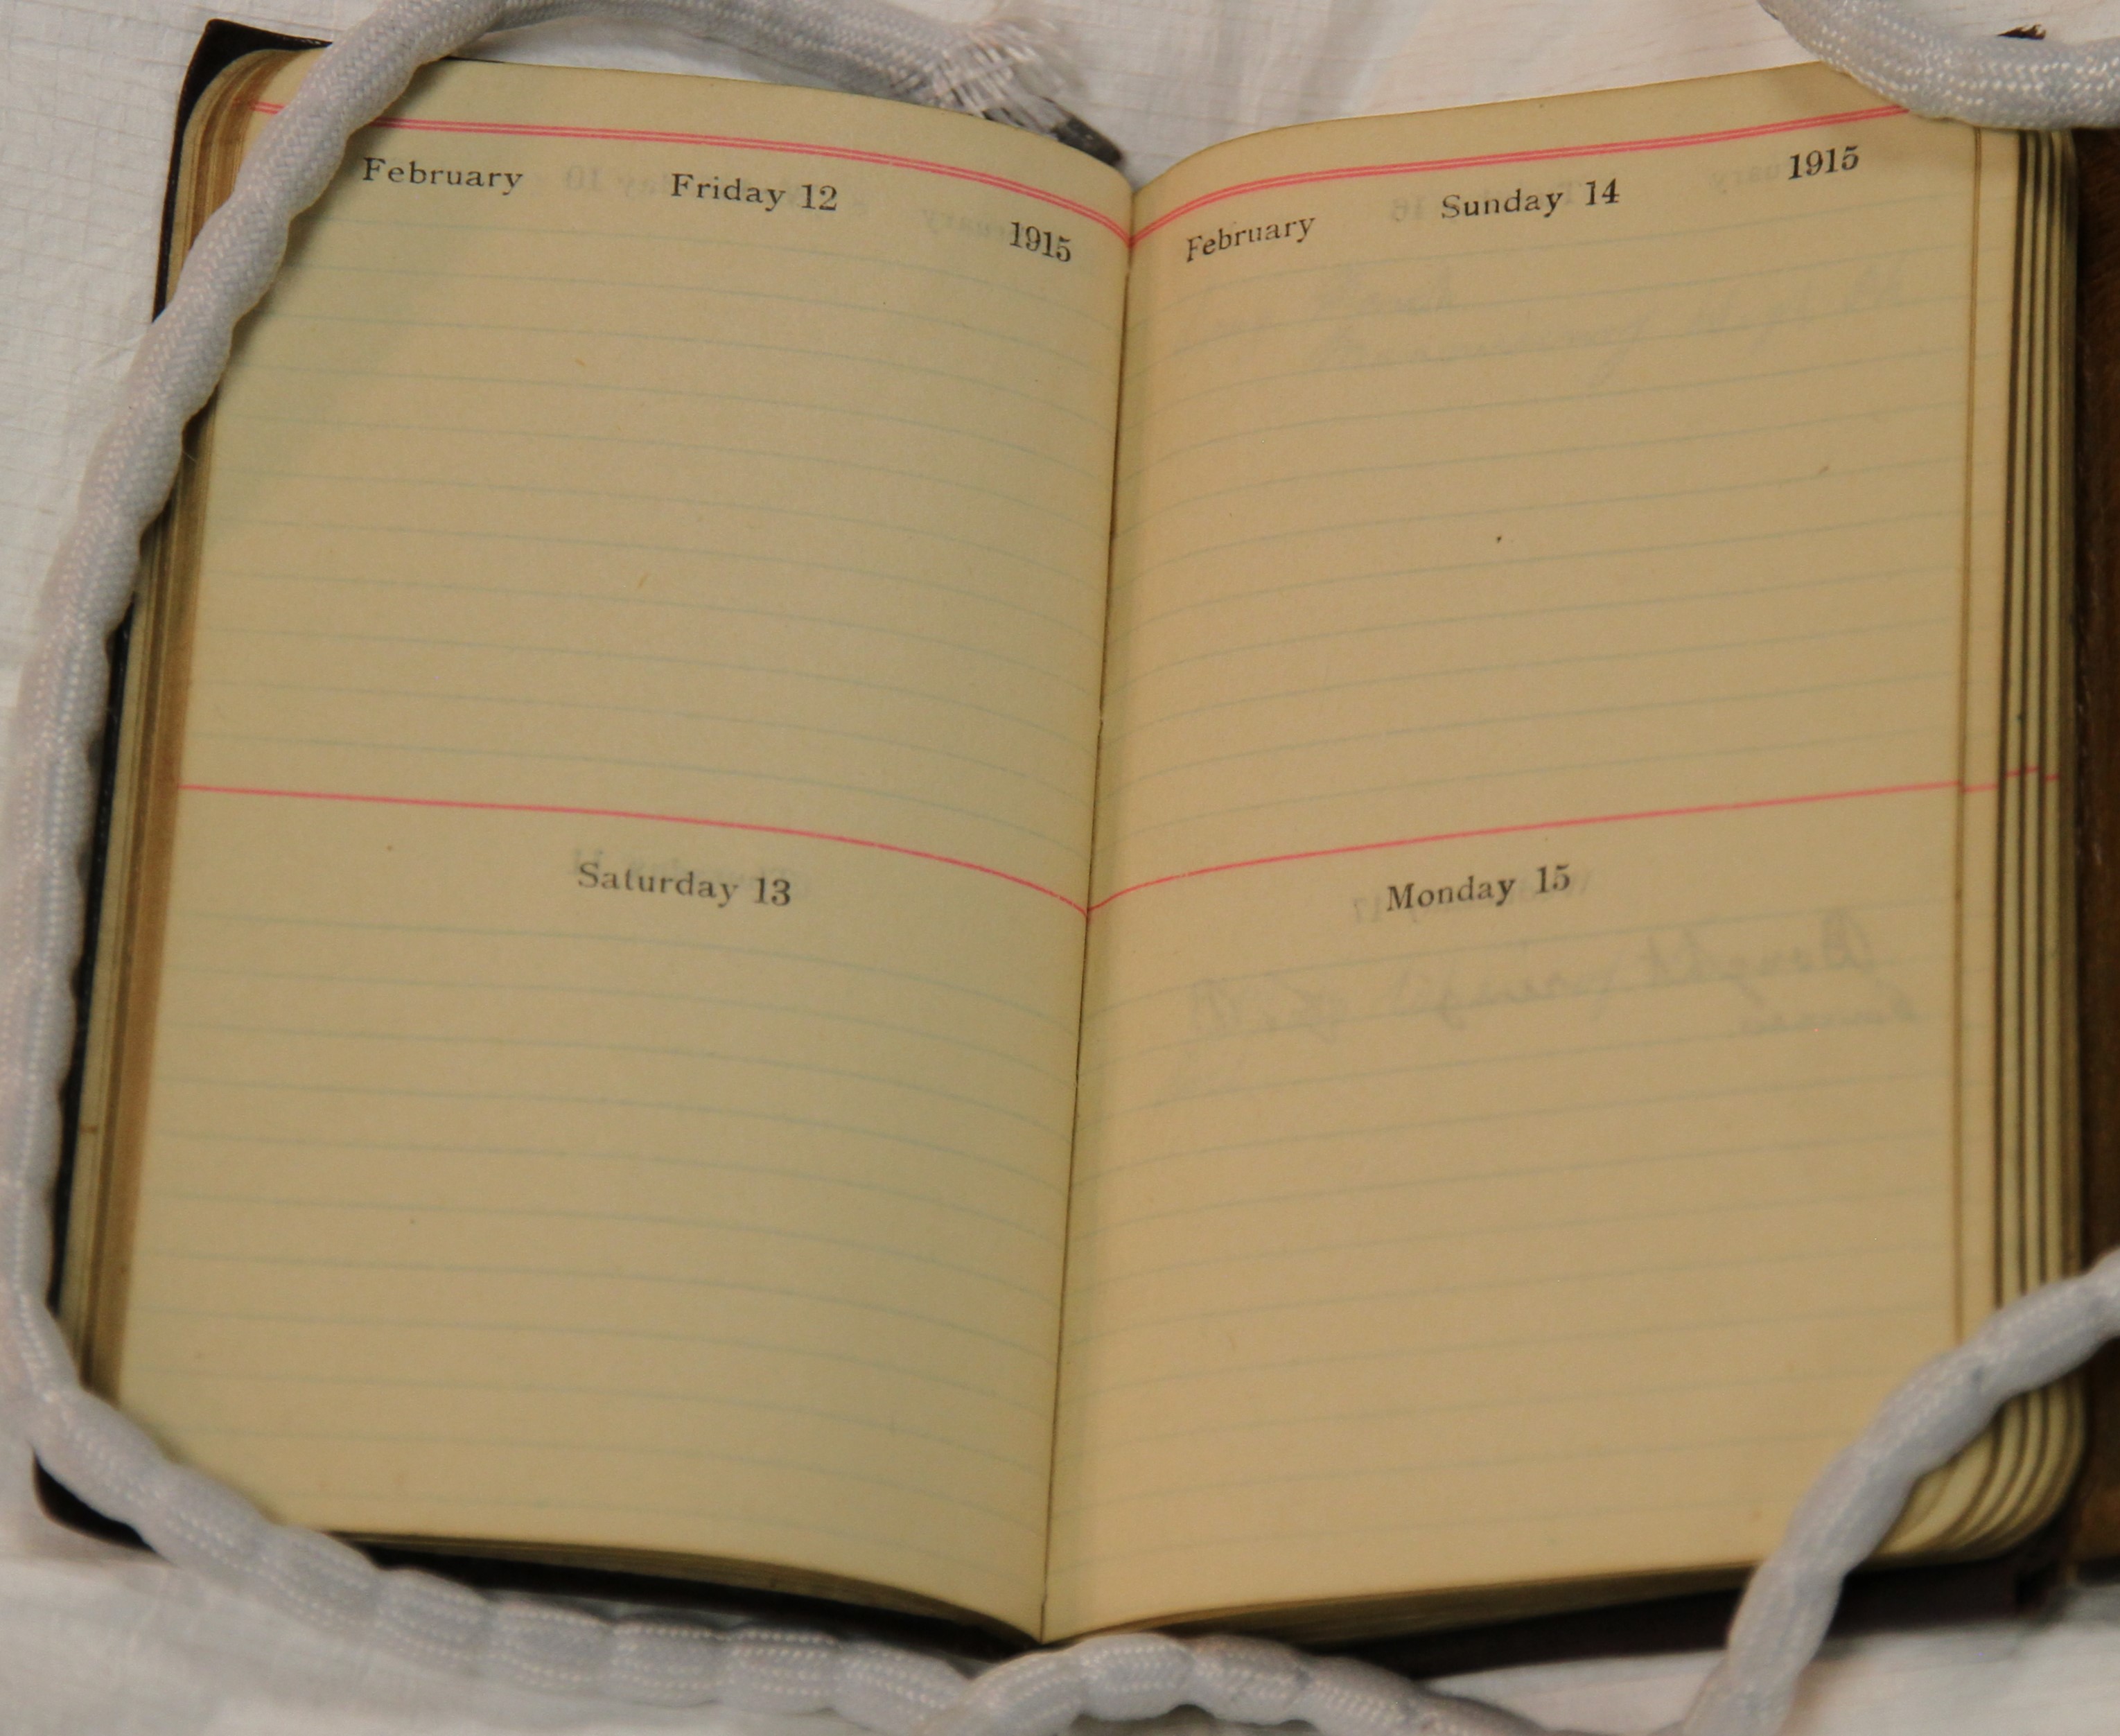 February Friday 12 1915
Saturday 13
February Sunday 14 1915
Monday 15